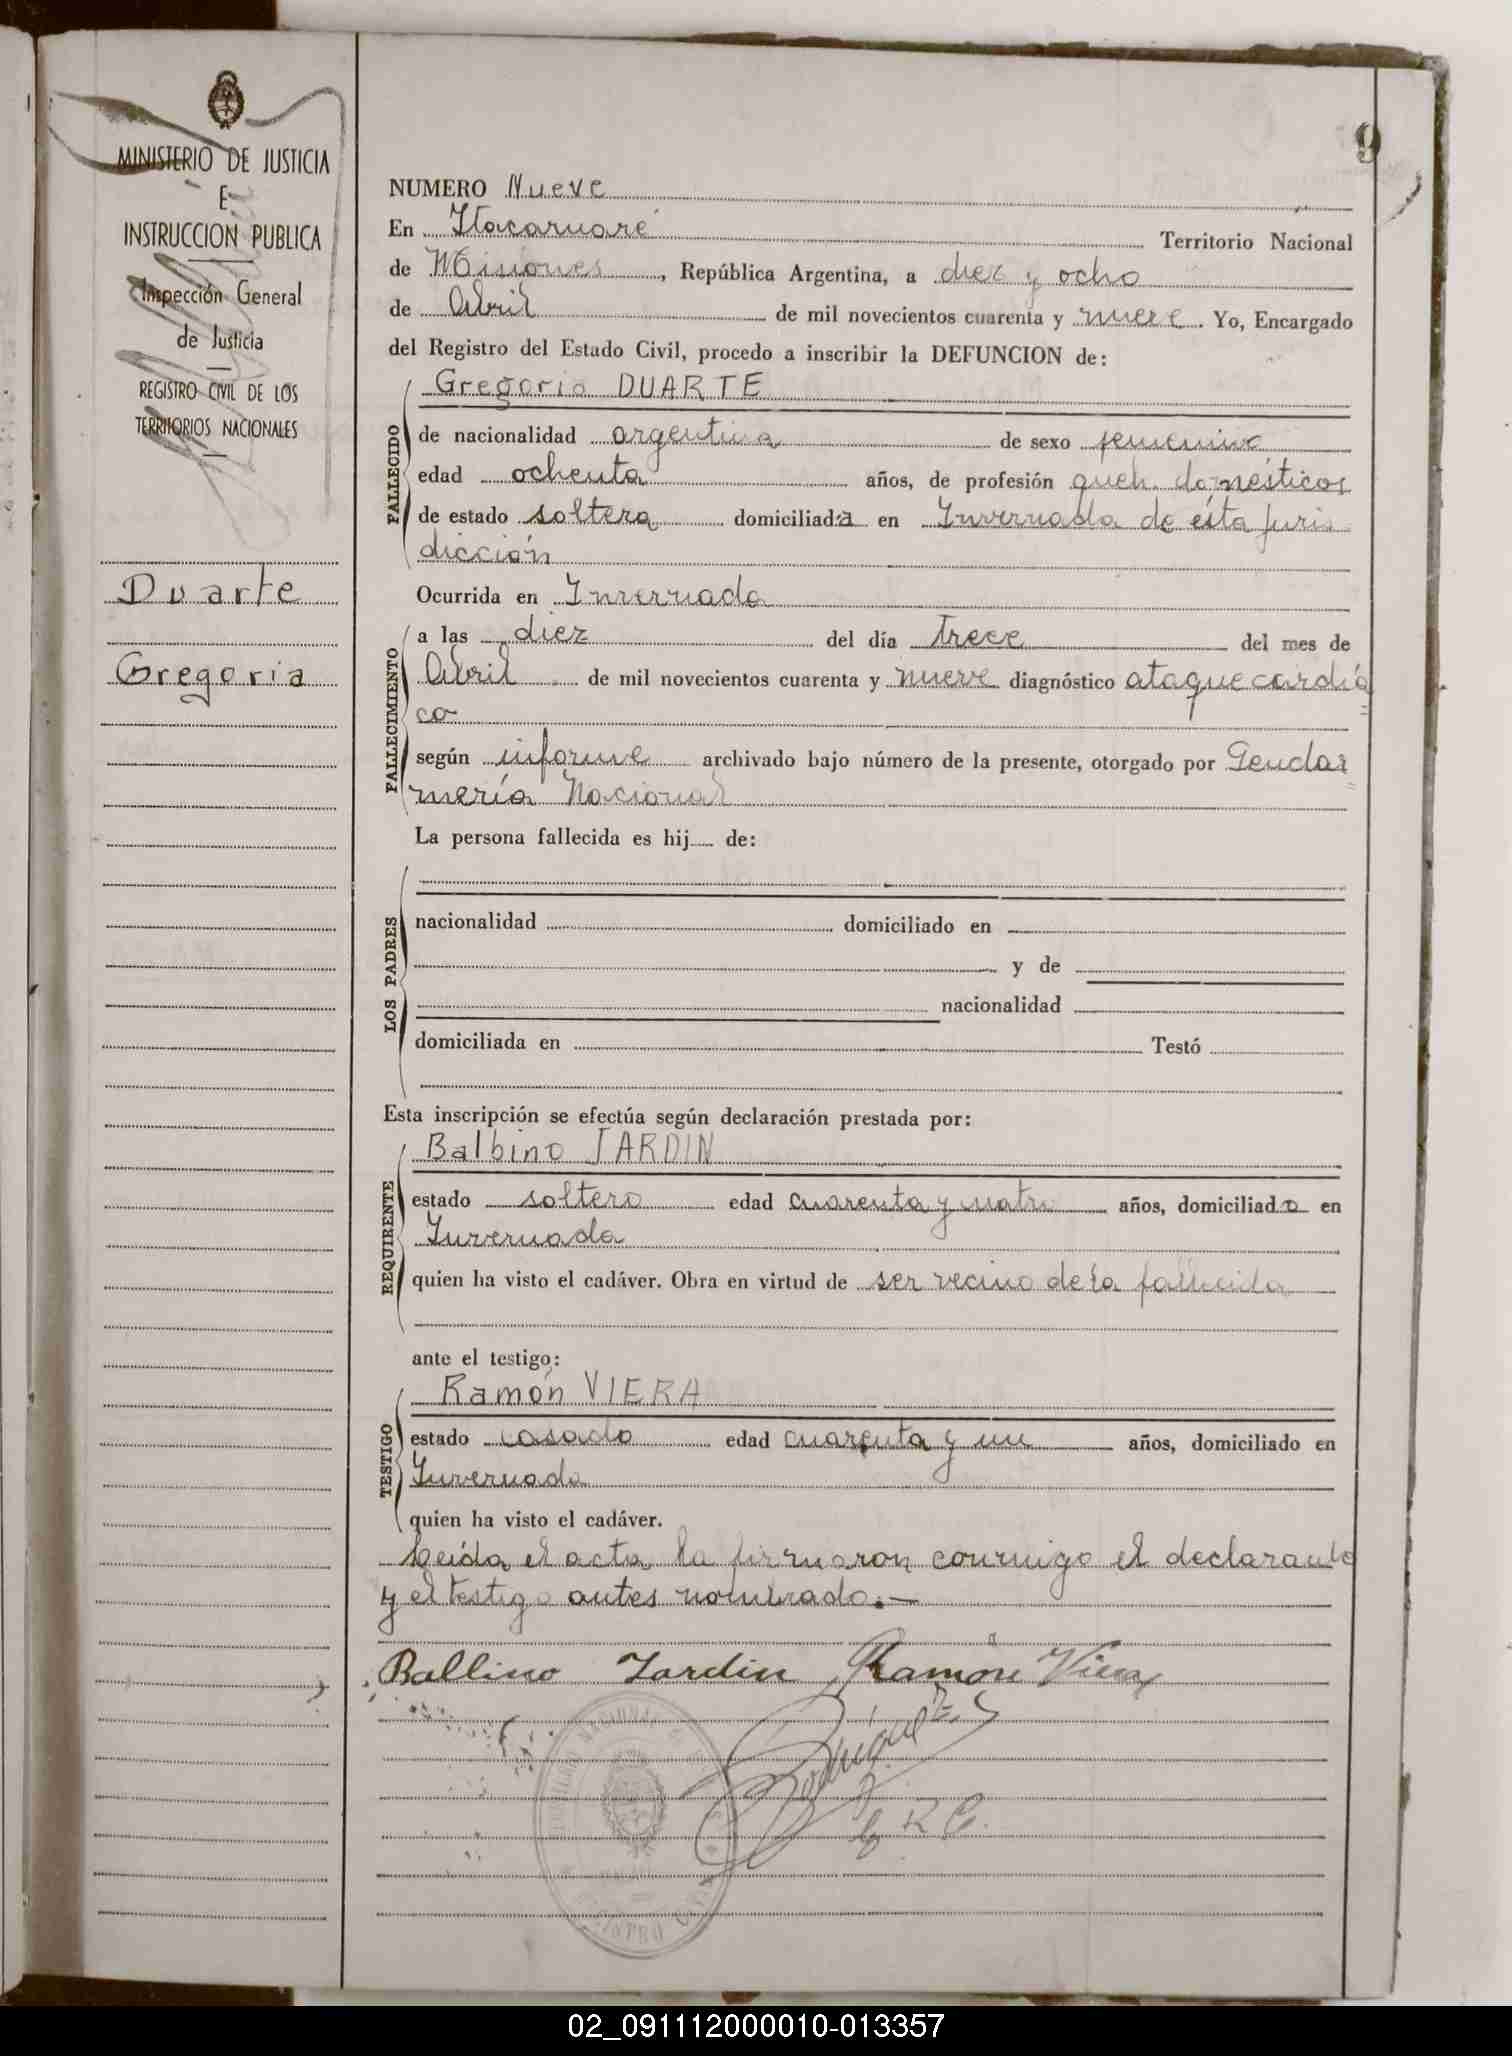 MINISTERIO DE JUSTICIA
E
INSTRUCCION PUBLICA
Inspección General
de Justicia
REGISTRO CIVIL DE LOS
TERRITORIOS NACIONALES
Duarte
Gregoria
9
NUMERO Nueve
En Itacaruaré Territorio Nacional
de Misiones, República Argentina, a diez y ocho
de Abril de mil novecientos cuarenta y nueve. Yo, Encargado
del Registro del Estado Civil, procedo a inscribir la DEFUNCION de:
FALLECIDO
Gregoria DUARTE
de nacionalidad argentina de sexo femenino
edad ochenta años, de profesión queh. domésticos
de estado soltera domiciliada en Invernada de ésta juris
dicción
Ocurrida en Invernada
FALLECIMIENTO
a las diez del día trece del mes de
Abril de mil novecientos cuarenta y nueve diagnóstico ataque cardía
co
según informe archivado bajo número de la presente, otorgado por Gendar
mería Nacional
La persona fallecida es hij de:
LOS PADRES
nacionalidad domiciliado en
y de
nacionalidad
domiciliada en Testó
Esta inscripción se efectúa según declaración prestada por:
REQUIRENTE
Balbino JARDIN
estado soltero edad cuarenta y cuatro años, domiciliado en
Invernada
quien ha visto el cadáver. Obra en virtud de ser vecino de la fallecida
ante el testigo:
TESTIGO
Ramón VIERA
estado casado edad cuarenta y un años, domiciliado en
Invernada
quien ha visto el cadáver.
Leída el acta la firmaron conmigo el declarante
y el testigo antes nombrado.—
Balbino Jardin Ramón Viera
REGISTRO CIVIL
E R C.
02_091112000010-013357